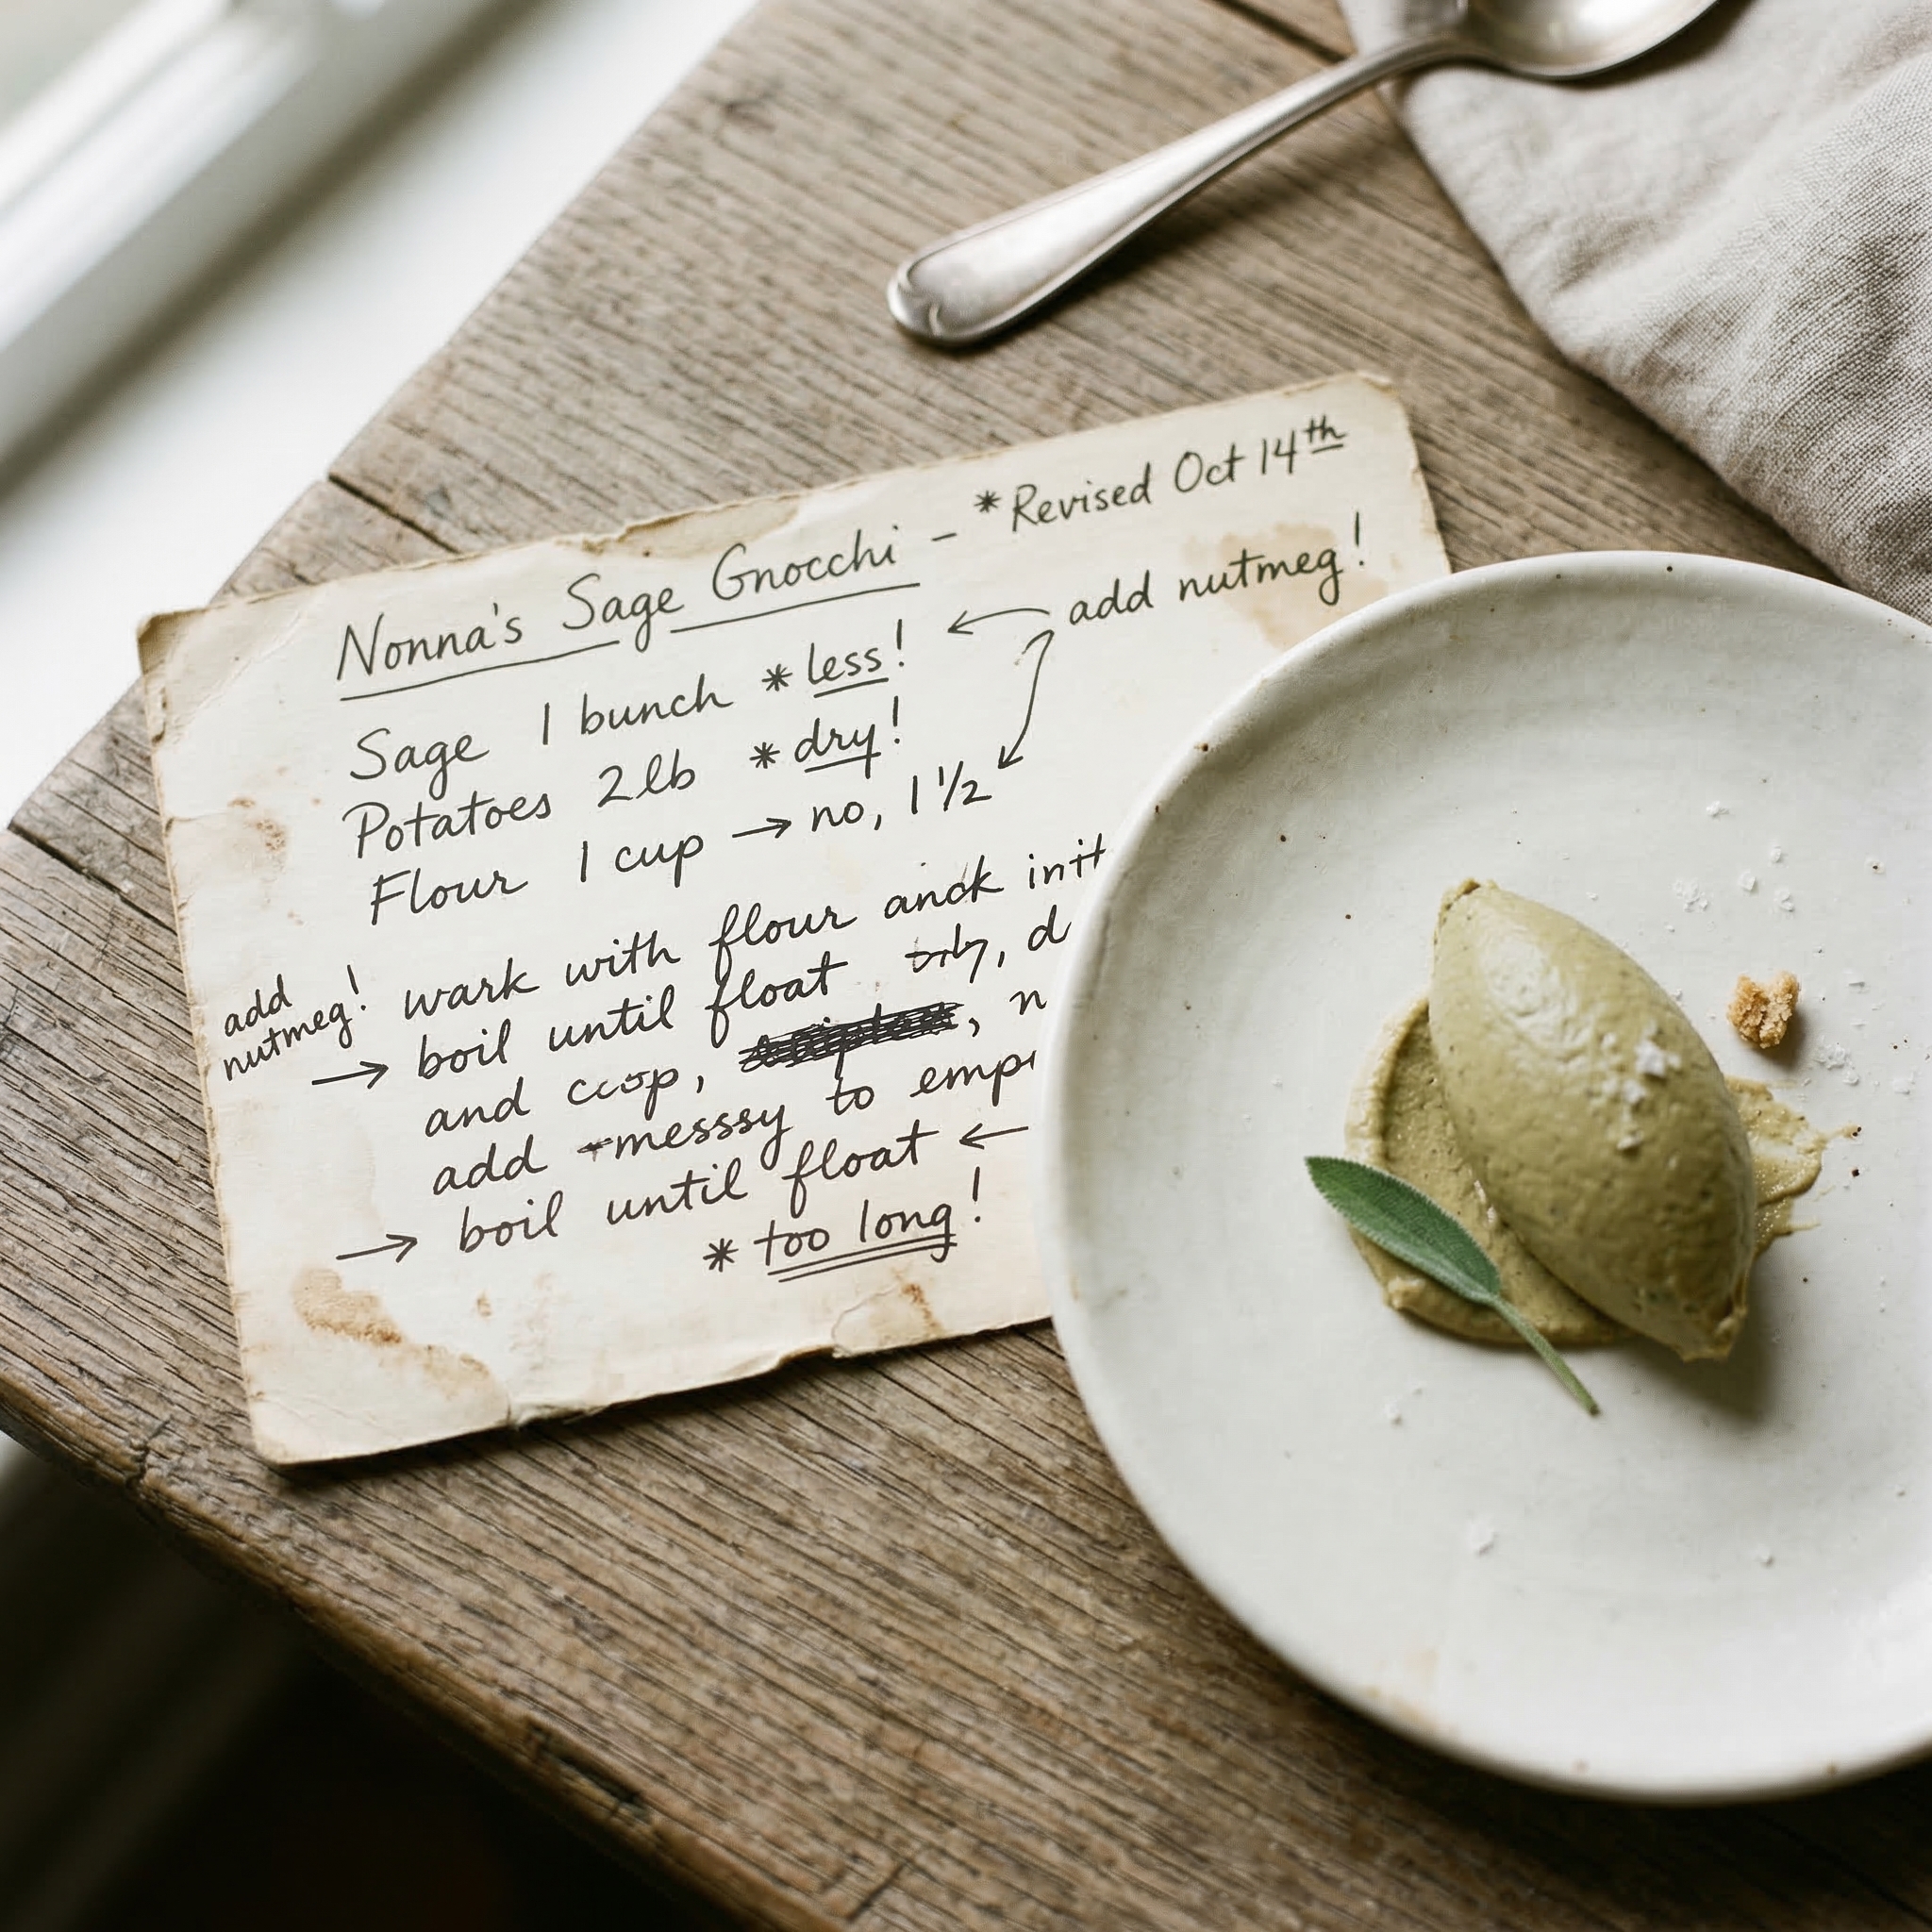 Nonna's Sage Gnocchi - *Revised Oct 14th
add nutmeg!
Sage 1 bunch *less!
Potatoes 2 lb *dry!
Flour 1 cup → no, 1 1/2
add
nutmeg!
wark with flour
→ boil until float
and
add messsy to
→ boil until float ←
* too long!